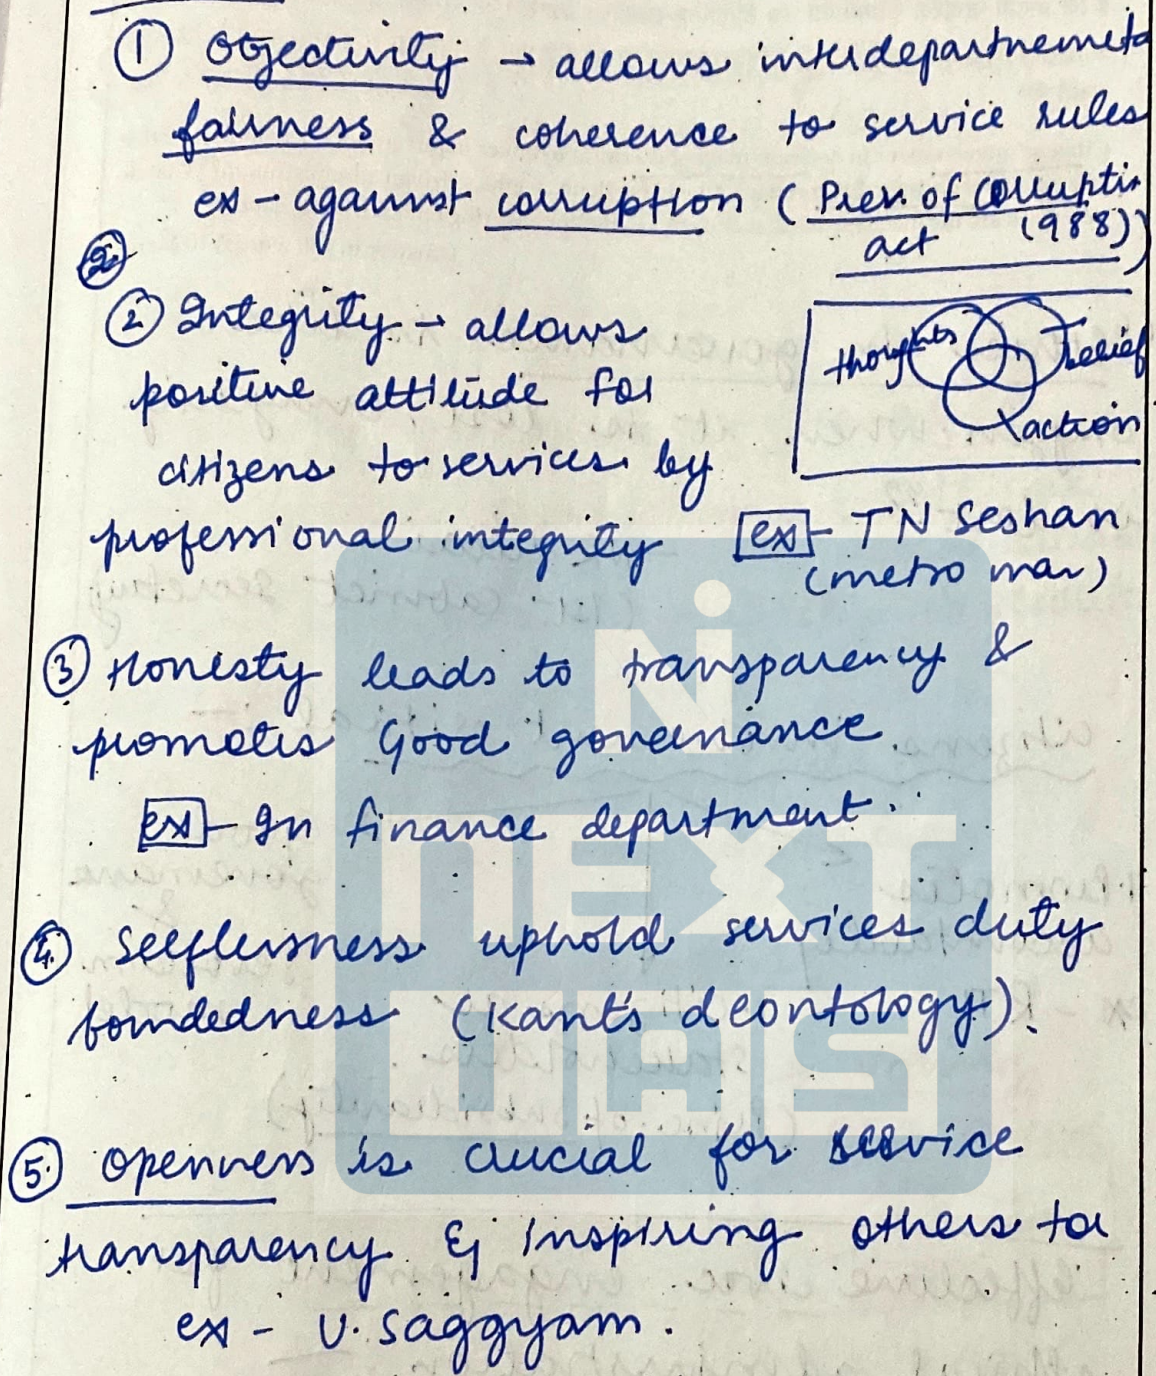 ① Objectivity → allows interdepartmental
fairness & coherence to service rules
ex - against corruption (Prev. of Corruption
act (1988))
②
② Integrity → allows
positive attitude for
citizens to services by
professional integrity
thoughts
belief
action
ex - TN Seshan
(metro man)
③ Honesty leads to transparency &
promotes Good governance
ex - In finance department.
④ Selflessness uphold services duty
bondedness (Kant's deontology).
⑤ openness is crucial for service
transparency & inspiring others to
ex - U. Saggyam.
NEXT
IAS